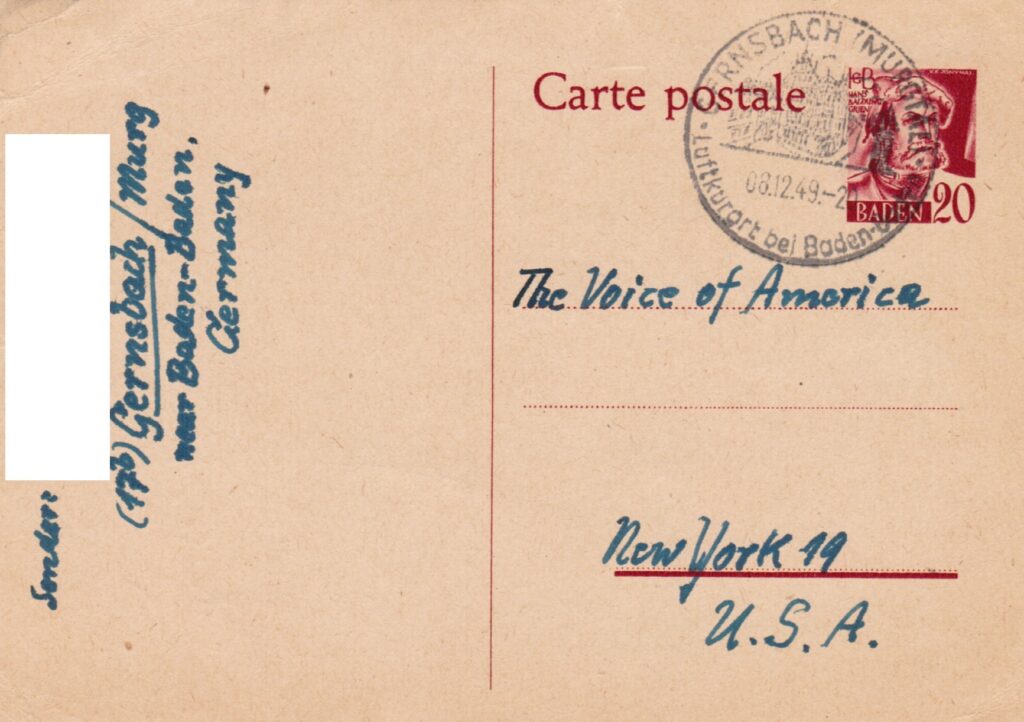 Carte postale
GERNSBACH (MURGTAL)
08.12.49.-2
Luftkurort bei Baden-
HGB
HANS
BALDUNG
GRIEN
BADEN 20
The Voice of America
New York 19
U.S.A.
Sender:
(17b) Gernsbach/Murg
near Baden-Baden,
Germany